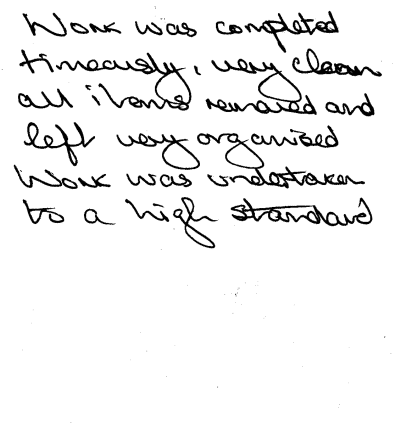 Work was completed
timeously, very clean
all items removed and
left very organised
Work was undertaken
to a high standard